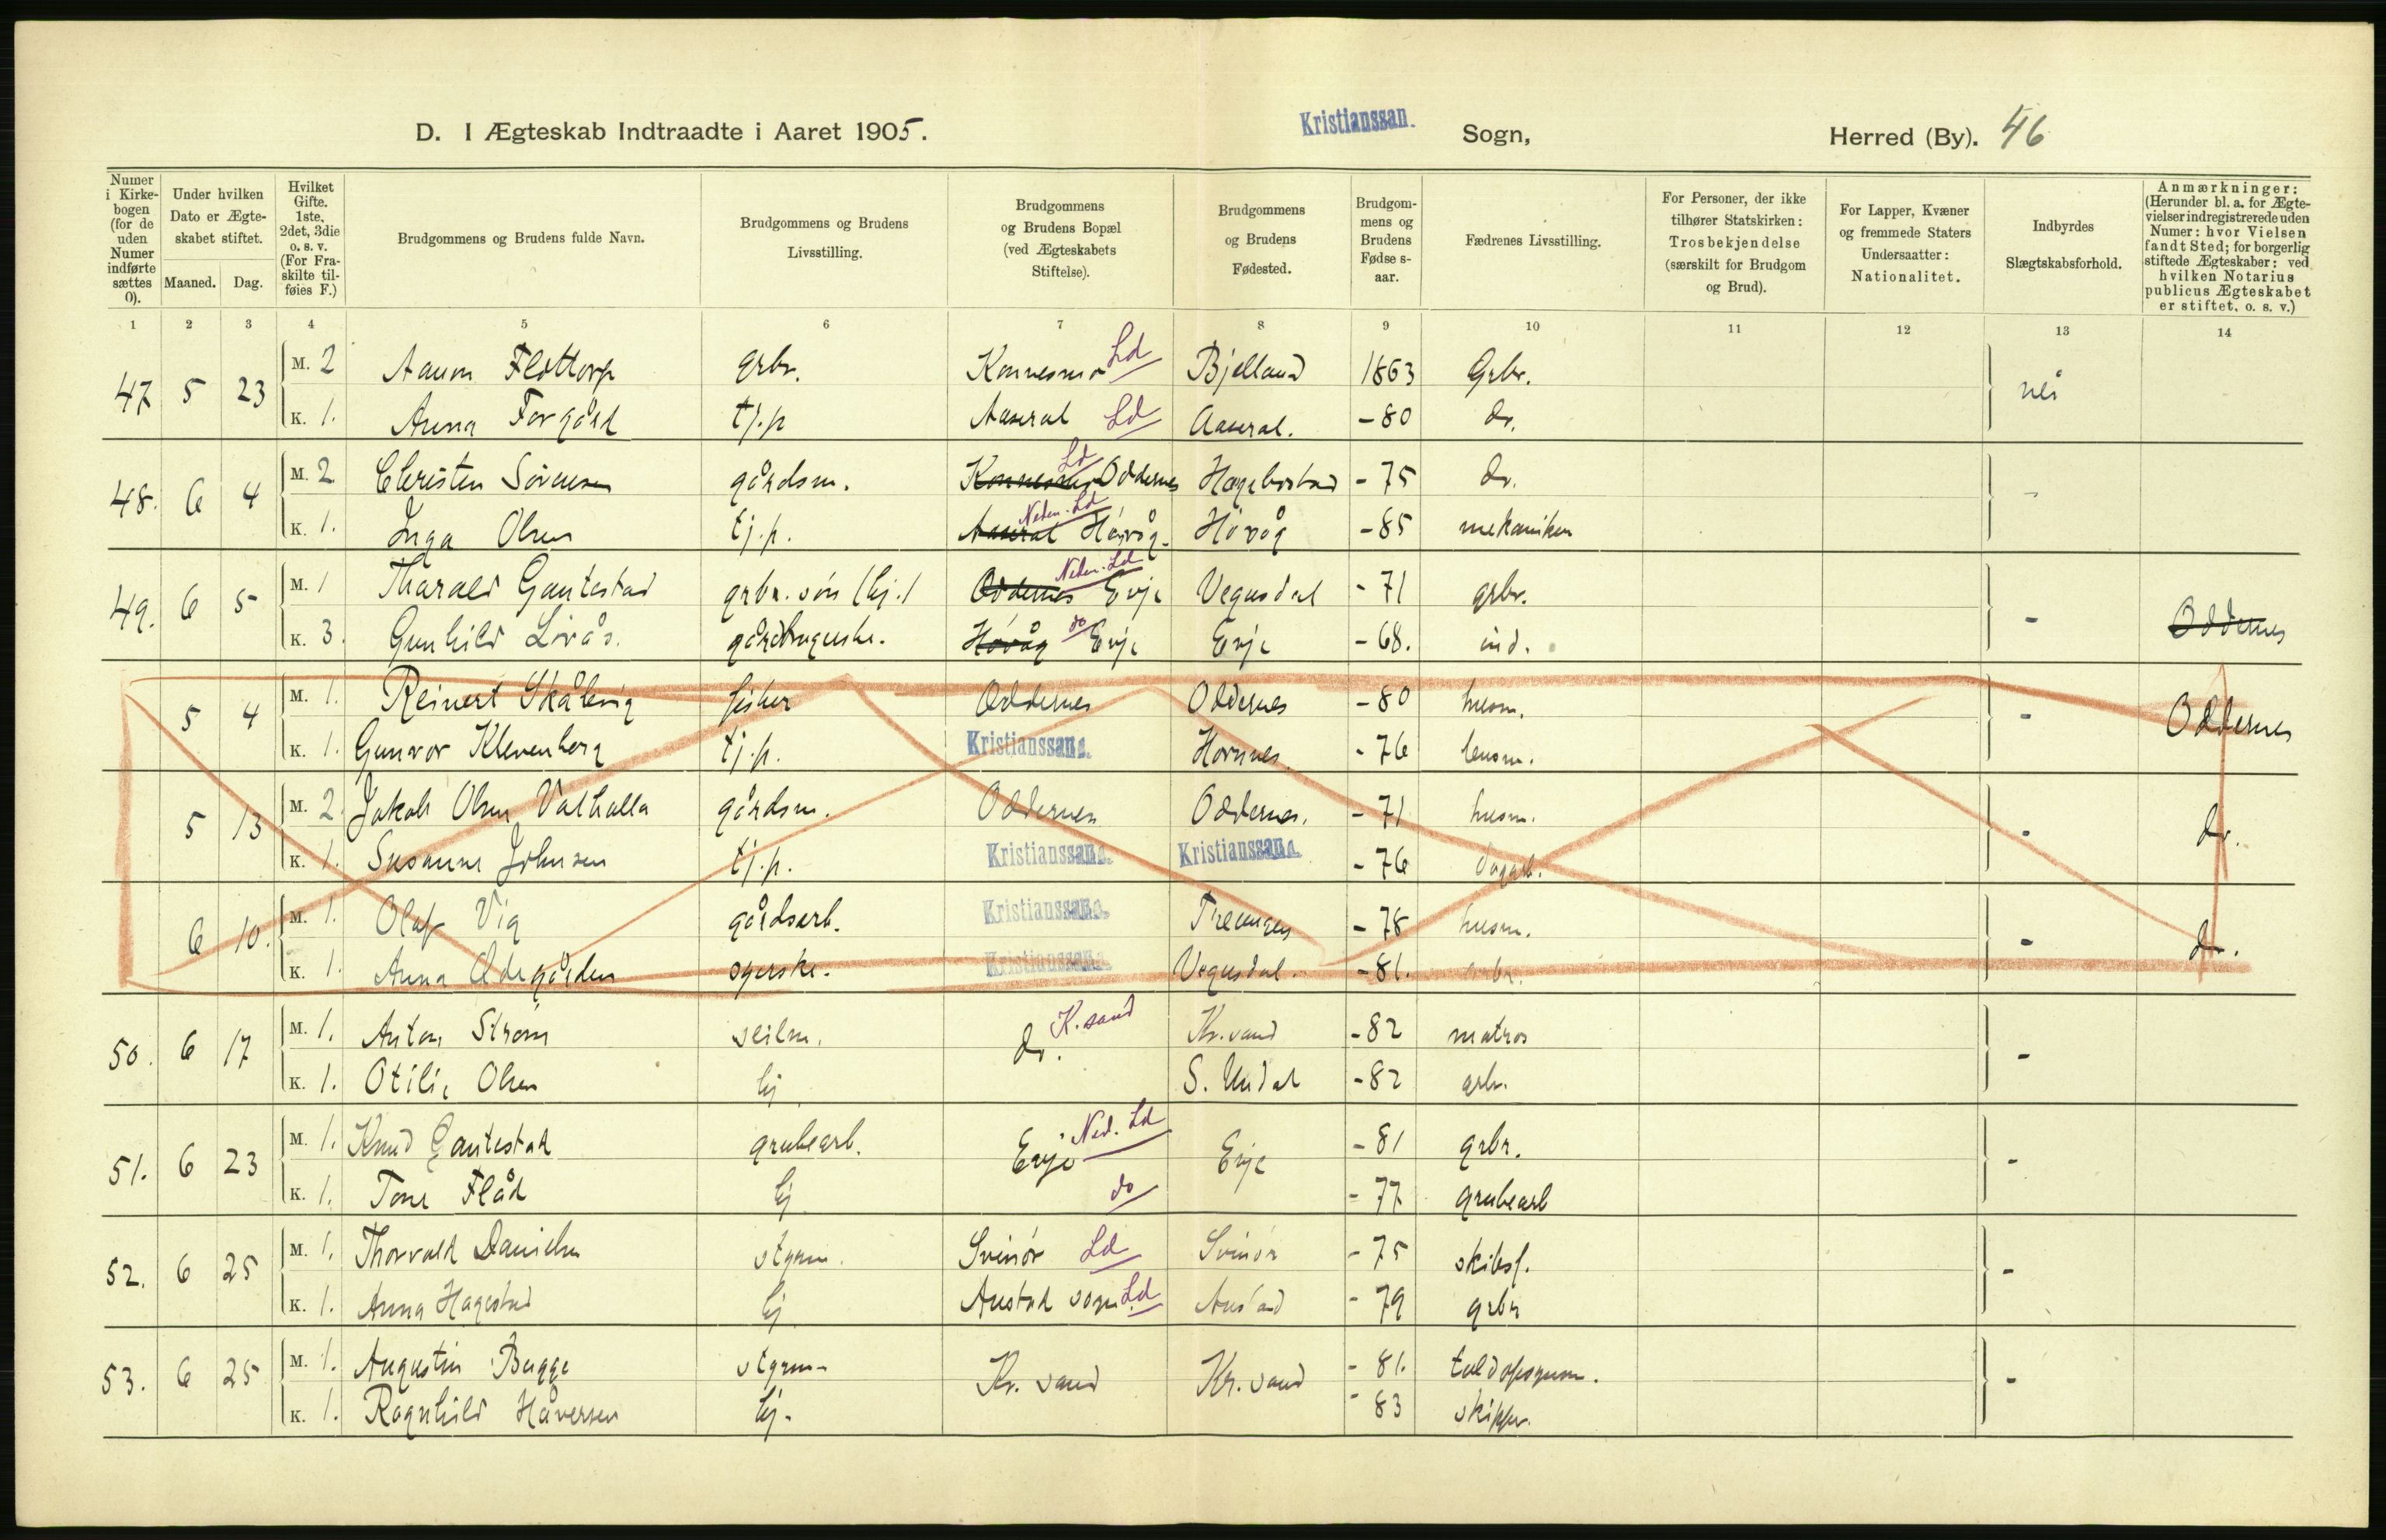 D. I Ægteskab Indtraadte i Aaret 1905. Kristianssan. Sogn, Herred (By). 46
Numer i Kirkebogen (for de uden Numer indførte sættes 0).
Under hvilken Dato er Ægteskabet stiftet.
Maaned. Dag.
Hvilket Gifte. 1ste, 2det, 3die o. s. v. (For Fraskilte tilføies F.)
Brudgommens og Brudens fulde Navn.
Brudgommens og Brudens Livsstilling.
Brudgommens og Brudens Bopæl (ved Ægteskabets Stiftelse).
Brudgommens og Brudens Fødested.
Brudgommens og Brudens Fødselsaar.
Fædrenes Livsstilling.
For Personer, der ikke tilhører Statskirken: Trosbekjendelse (særskilt for Brudgom og Brud).
For Lapper, Kvæner og fremmede Staters Undersaatter: Nationalitet.
Indbyrdes Slægtskabsforhold.
Anmærkninger: (Herunder bl. a. for Ægtevielser indregistrerede uden Numer: hvor Vielsen fandt Sted; for borgerlig stiftede Ægteskaber: ved hvilken Notarius publicus Ægteskabet er stiftet, o. s. v.)
1 2 3 4 5 6 7 8 9 10 11 12 13 14
47 5 23 M. 2 Flottorp grbr. Konnesmo Ld Bjelland 1863 Grbr. nei
K. 1. Anna Forgård tj.p Aaseral Ld Aaseral. -80 do.
48. 6 4 M. 2 Christen Sörensen gårdsm. Konnesmo Oddernes Ld Hægebostad -75 do. -
K. 1. Inga Olsen tj.p. Aaseral Høvåg Neden. Ld Høvåg -85 mekaniker
49. 6 5 M. 1 Tharald Gautestad grbr. søn (hj.) Oddernes Evje Neden. Ld Vegusdal -71 grbr. - Oddernes
K. 3. Gunhild Lövås. gårdbrugerske. Høvåg do Evje Evje -68. ind.
5 4 M. 1. Reinert Skålevig fisker Oddernes Oddernes -80 husm. - Oddernes
K. 1. Gunvor Klevenberg tj.p. Kristianssand. Hornnes. -76 lensm.
5 13 M. 2. Jakob Olsen Valhalla gårdsm. Oddernes Oddernes. -71 husm. - do.
K. 1. Susanne Johnsen tj.p. Kristianssand. Kristianssand. -76 dagarb.
6 10. M. 1. Olaf Vig gårdsarb. Kristianssand. Treungen -78 husm. - do.
K. 1. Anna Ødegården syerske. Kristianssand. Vegusdal. -81. grbr.
50. 6 17 M. 1. Anton Strøm seilm. do. K.sand Kr.sand -82 matros -
K. 1. Otilie Olsen hj S. Undal -82 grbr.
51. 6 23 M. 1. Knud Gautestad grubearb. Evje Ned. Ld Evje -81 grbr. -
K. 1. Tone Flåd hj do -77 grubearb
52. 6 25 M. 1. Thorvald Danielsen stgrm. Svinör Ld Svinör -75 skibsf. -
K. 1. Anna Hagestad hj Austad sogn Ld Austad -79 grbr
53. 6 25 M. 1. Augustin Bugge stgrm. Kr. sand Kr. sand -81. toldopsynsm. -
K. 1. Ragnhild Håversen hj. -83 skipper.